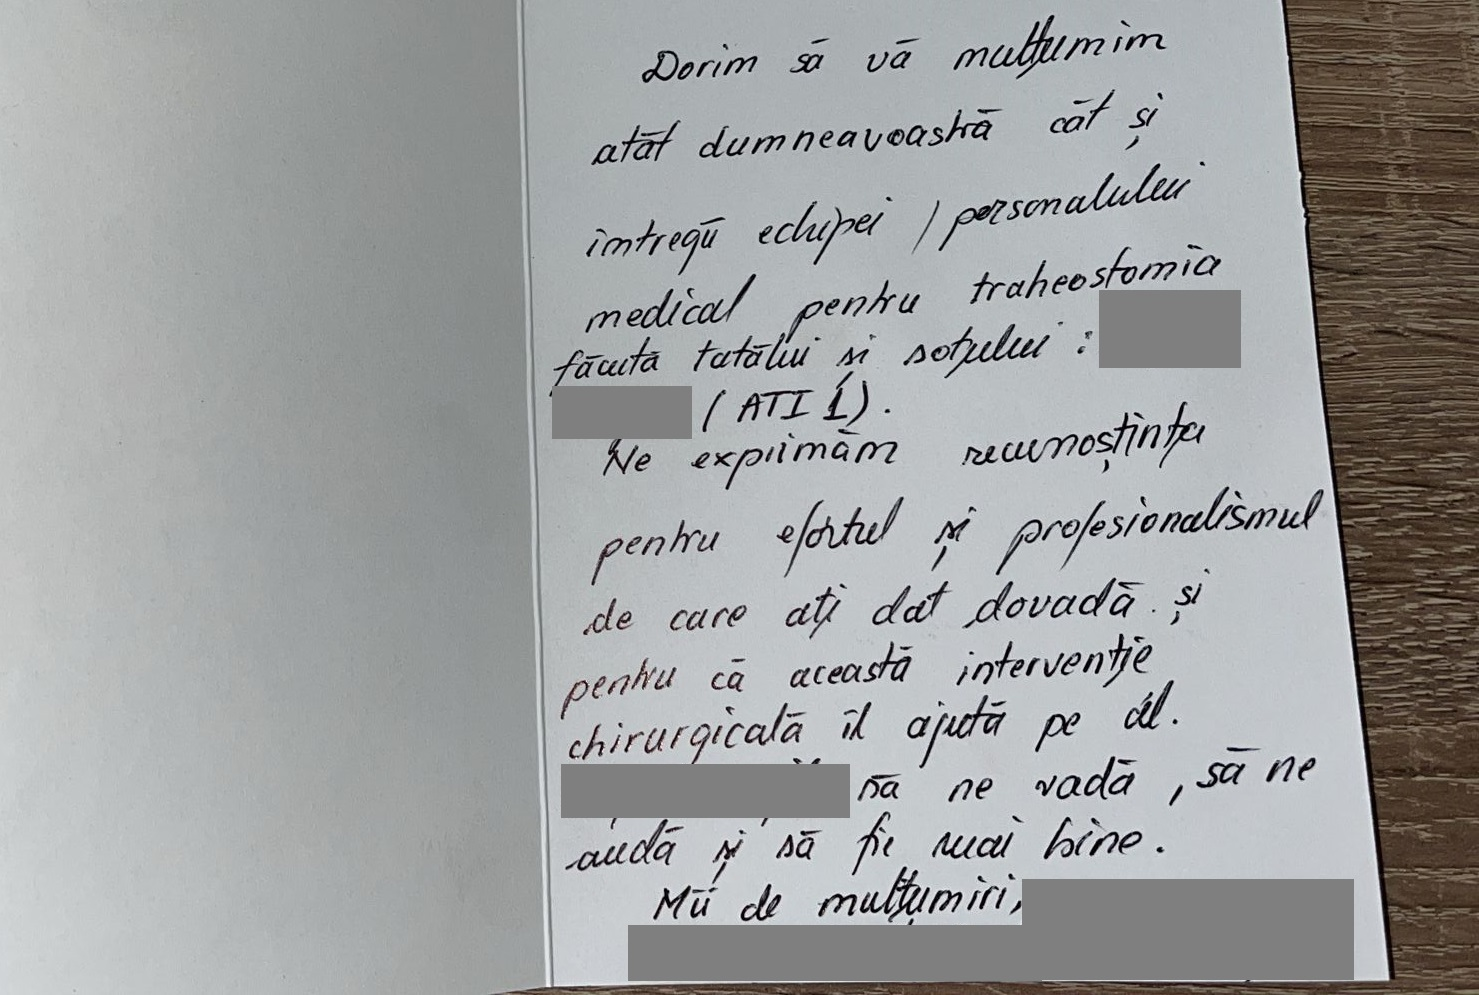 Dorim să vă mulțumim
atât dumneavoastră cât și
întregii echipei / personalului
medical pentru traheostomia
făcută tatălui și soțului :
( ATI 1).
Ne exprimăm recunoștința
pentru efortul și profesionalismul
de care ați dat dovadă și
pentru că această intervenție
chirurgicală îl ajută pe él.
să ne vadă, să ne
audă și să fie mai bine.
Mii de mulțumiri,